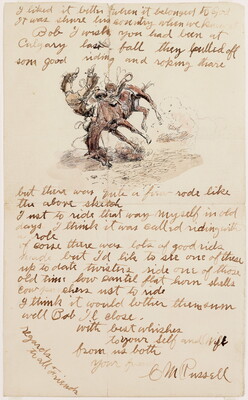 I liked it better when it belonged to
It was shure his country when we
Bob I wish you had been at
Calgary last fall they pulled off
som good riding and roping there
but there was quite a fiew rode like
the above sketch
I ust to ride that way myself in old
days I think it was called riding with
a rope
of corse there was lots of good rids
made but I'd like to see one of these
up to date twisters ride one of those
old time low cantel flat horn shells
cow ers ust to ride
I think it would bother them som
well Bob Il close
with best whishes
to your self and wife
from us both
your
C M Russell
regards
to all friends